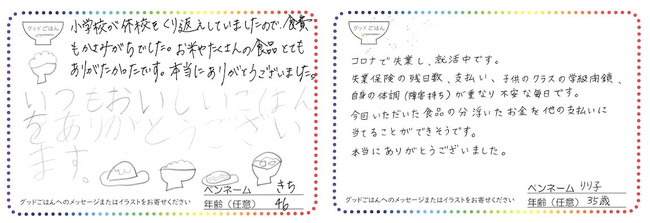 グッドごはん
小学校が休校をくり返えしていましたので、食費
もかさみがちでした。お米やたくさんの食品とても
ありがたかったです。本当にありがとうございました。
いつもおいしいごはん
をありがとうござい
ます。
グッドごはんへのメッセージまたはイラストをお寄せください
ペンネーム きち
年齢（任意） 46
グッドごはん
コロナで失業し、就活中です。
失業保険の残日数、支払い、子供のクラスの学級閉鎖、
自身の体調(障害持ち)が重なり不安な毎日です。
今回いただいた食品の分浮いたお金を他の支払いに
当てることができそうです。
本当にありがとうございました。
グッドごはんへのメッセージまたはイラストをお寄せください
ペンネーム りり子
年齢（任意） 35歳